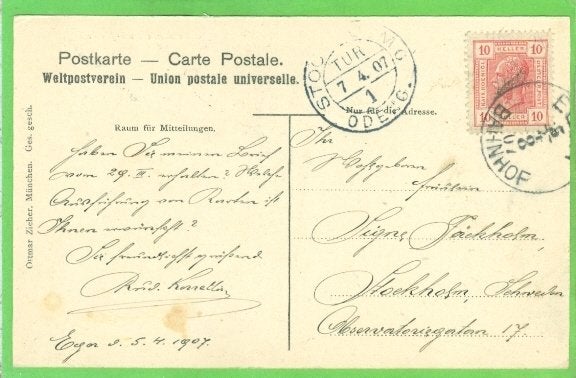 Postkarte — Carte Postale.
Weltpostverein – Union postale universelle.
Raum für Mitteilungen.
Nur für die Adresse.
Ottmar Zieher, München. Ges. gesch.
haben Sie meinen Brief
vom 29. III. erhalten? Welche
Ausführung von Karten ist
Ihnen erwünscht?
Sie freundlichst grüßend
Rud.
Eger d. 5. 4. 1907.
Ihr
Wohlgeboren
Fräulein
Signe Täckholm,
Stockholm, Schweden
Observatoriegatan 17.
TUR
7 4. 07
1
ODEBG.
10 HELLER 10
10 10
BAHNHOF